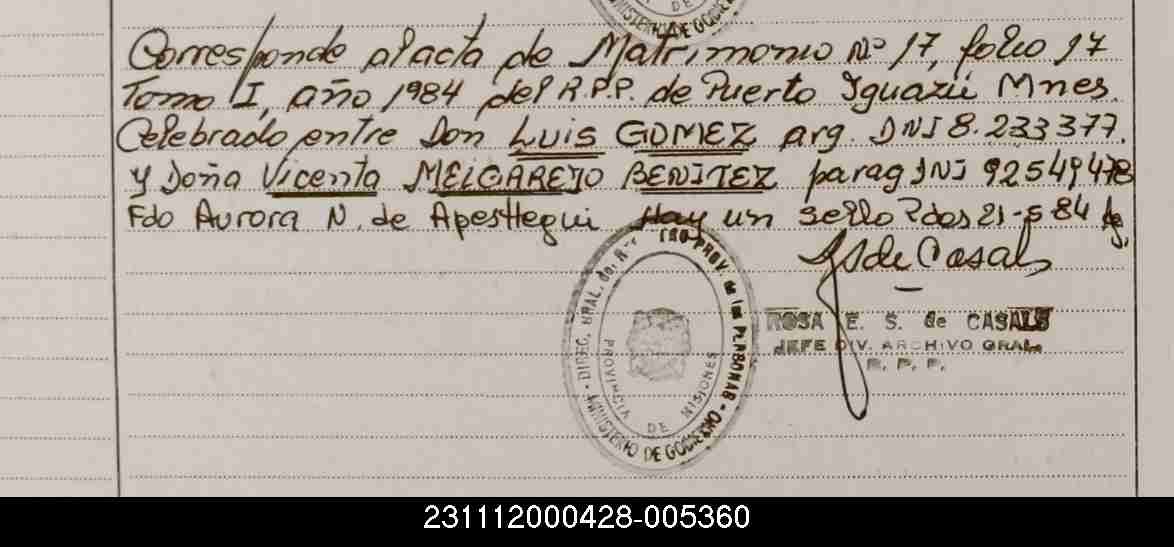 MINISTERIO DE GOBIERNO
Corresponde al acta de Matrimonio Nº 17, folio 17
Tomo I, año 1984 del R.P.P. de Puerto Iguazú Mnes.
Celebrado entre Don Luis GOMEZ arg. DNI 8.233377.
y Doña Vicenta MELGAREJO BENITEZ parag DNI 92549478
Fdo Aurora N. de Apesttegui Hay un sello Pdas 21-5 84
de Casals
ROSA E. S. de CASALS
JEFE DIV. ARCHIVO GRAL.
R. P. P.
DIREC. GRAL. del REGISTRO PROV. de las PERSONAS - MINISTERIO DE GOBIERNO
PROVINCIA DE MISIONES
231112000428-005360